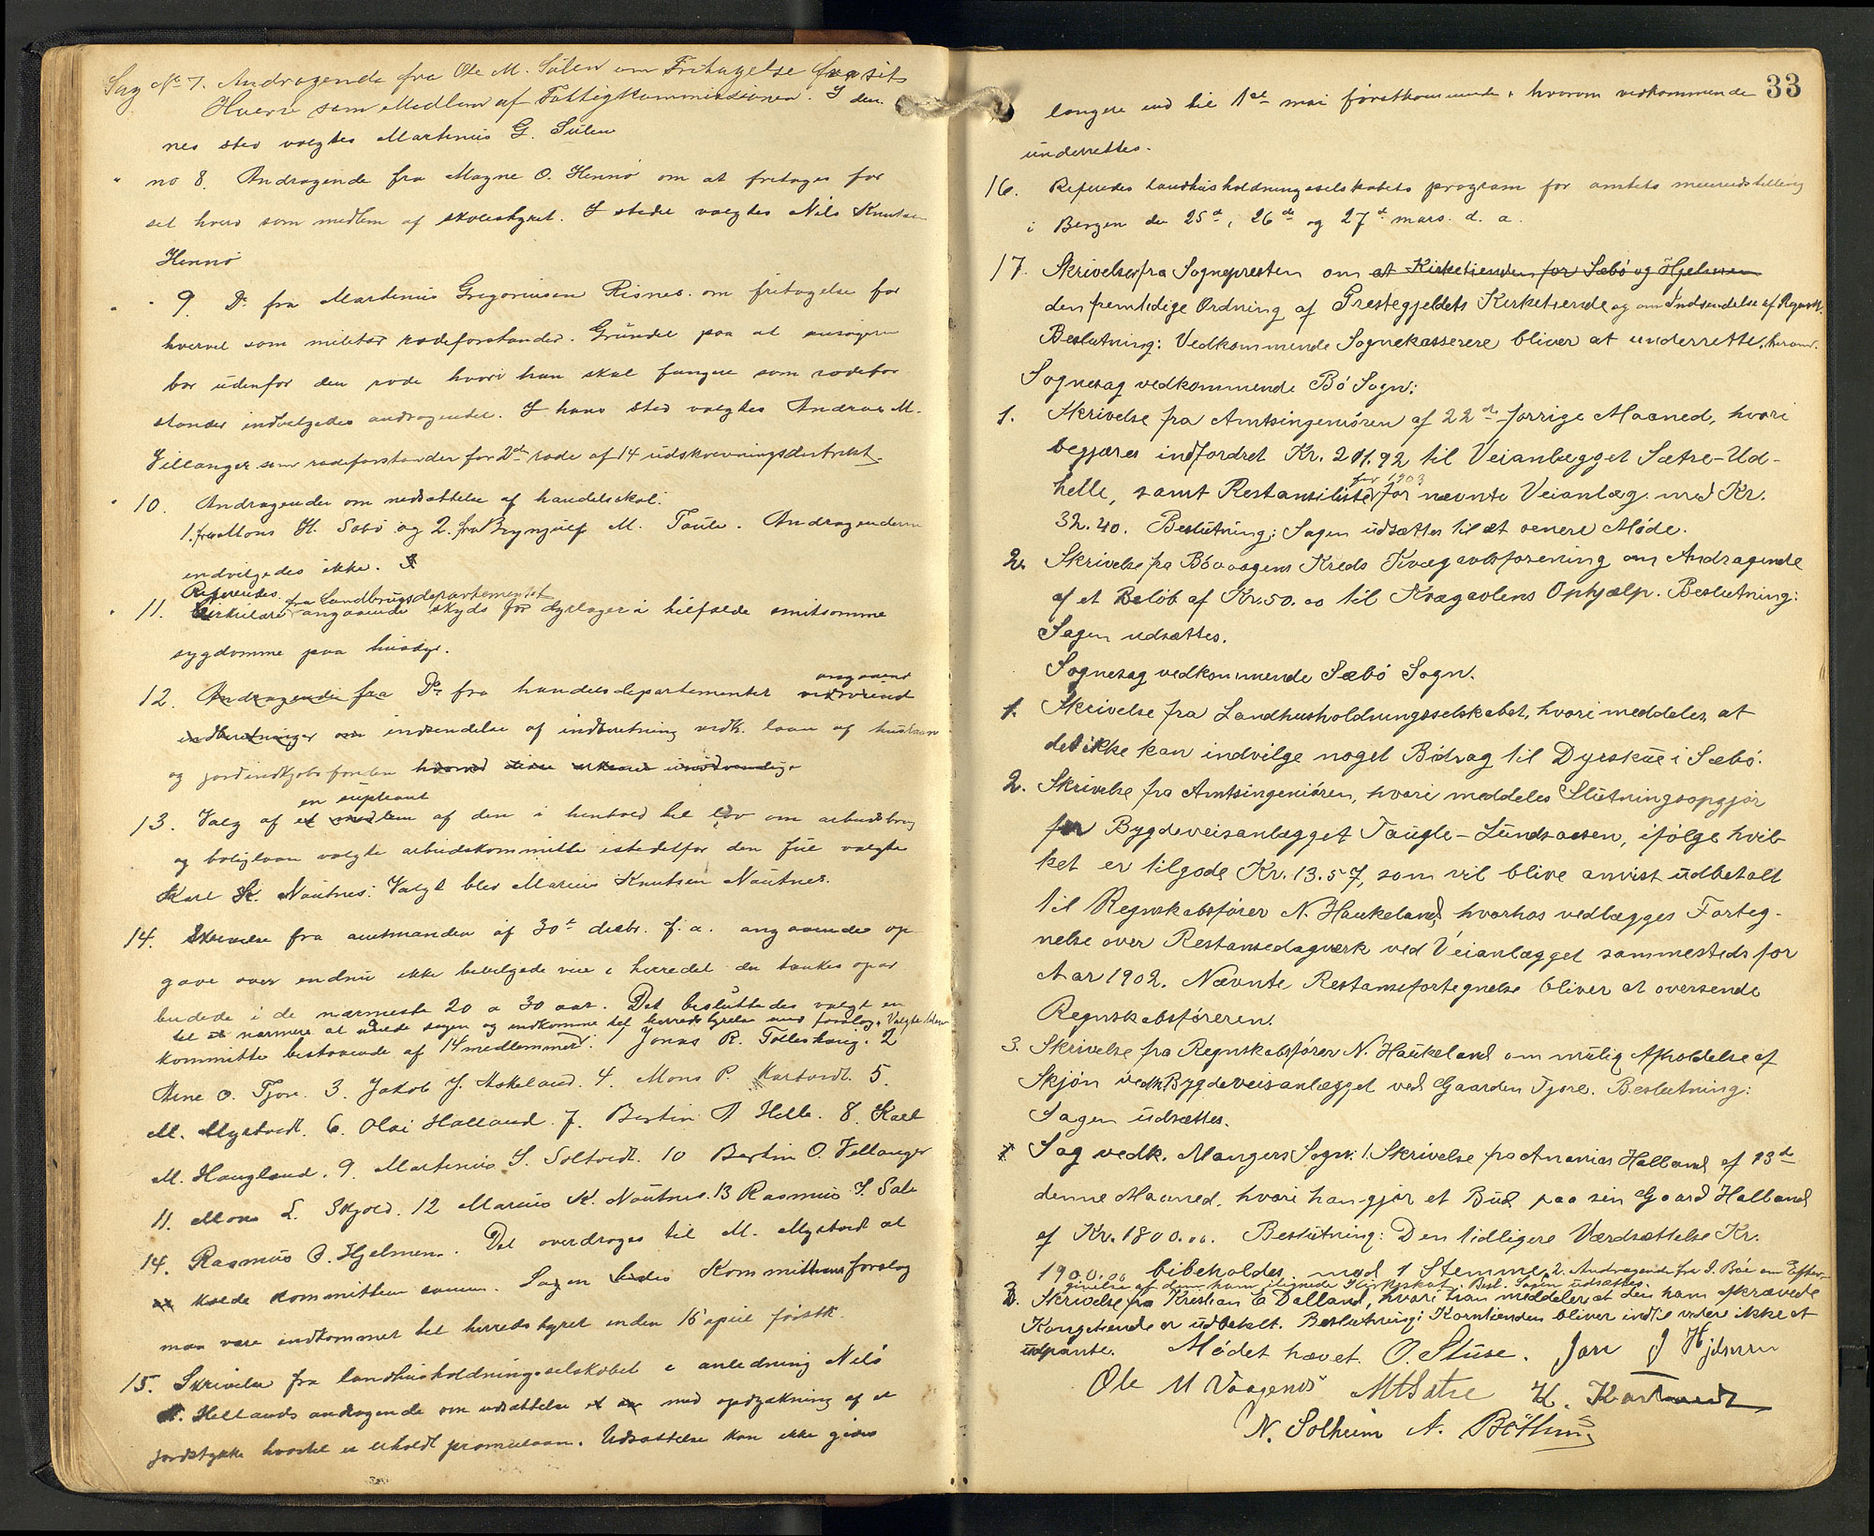 Sag No 7. Andragende fra Ole M. Sülen om Fritagelse fra sit
Hverv som Medlem af Fattigkommissionen. I den-
nes sted valgtes Martinus G. Sülen
" no 8. Andragende fra Magne O. Hennö om at fritages for
set hverv som medlem af skolestyret. I stedet valgtes Nils Knutsen
Hennö
" " 9. Do fra Martinus Gregoriusen Risnes om fritagelse for
hvervet som militær rodeforstander. Grundet paa at ansögeren
bor udenfor den rode hvori han skal fungere som rodefor
stander indvilgedes andragendet. I hans sted valgtes Andreas M.
Villanger som rodeforstander for 2den rode af 14 udskrivningsdistrikt.
" 10. Andragender om nedsættelse af handelsskat.
1. fra Mons H. Sæbö og 2. fra Brynjulf M. Toule. Andragenderne
indvilgedes ikke.
Refereredes fra Landbrugsdepartementet
" 11. Cirkulære angaaende skyds for dyrlæger i tilfælde smitsomme
sygdomme paa husdyr.
angaaend
12. Andragende fra Do fra handelsdepartementet vedrørend
indberetninger om indsendelse af indberetning vedk. laan af huslaan
og jordindkjöbsfondene
en supleant
13. Valg af et medlem af den i henhold til lov om arbeidsbrug
og boliglaan valgte arbeidskommitte istedetfor den för valgte
Karl K. Nautnes. Valgt blev Marius Knutsen Nautnes.
14. Skrivelse fra amtmanden af 30te decbr. f.a. angaaende op
gave over endnu ikke bevilgede veie i herredet der tænkes opar
beidede i de nærmeste 20 a 30 aar. Det besluttedes valgt en
til at nærmere at utrede sagen og indkomme til herredstyrelse med forslag. Valgte blev
kommitte bestaaende af 14 medlemmer. 1 Jonas R. Tolleshaug. 2
Arne O. Fjore. 3. Jakob J. Askeland. 4. Mons P. Kartveit. 5.
M. Mystvedt. 6. Olai Halland. 7. Bertin A Helle. 8. Karl
M. Haugland. 9. Martinus S. Soltvedt. 10 Bertin O. Villanger
11. Mons L. Skjold. 12 Marius K. Nautnes. 13 Rasmus J. Sale
14. Rasmus O. Hjelmen. Det overdroges til M. Mystvedt at
kalde kommitteen sammen. Sagen Kommitteens forslag
maa være indkommet til herredstyret inden 15 april förstk.
15. Skrivelse fra landhusholdningsselskabet i anledning Nils
A. Hellands andragende om udsættelse med opdyrkning af et
jordstykke hvortil er erholdt præmielaan. Udsættelse kan ikke gives
33
længere end til 1ste mai förstkommende, hvorom vedkommende
underrettes.
16. Referedes landhusholdningsselskabets program for amtets meieriudstilling
i Bergen den 25de, 26de og 27de mars. d. a.
17. Skrivelse fra Sognepresten om at Kirketienden for Sæbö og Hjelmen
den fremtidige Ordning af Prestegjeldets Kirketiende og om Indsendelse af Regnsk.
Beslutning: Vedkommende Sognekasserere bliver at underrette herom.
Sognesag vedkommende Bö Sogn:
1. Skrivelse fra Amtsingeniören af 22de forrige Maaned, hvori
begjæres indfordret Kr. 201.92 til Veianlægget Sætre-Ud-
for 1903
helle, samt Restanseliste for nævnte Veianlæg med Kr.
32.40. Beslutning: Sagen udsættes til et senere Möde.
2. Skrivelse fra Bövaagens Kreds Kvægavlsforening om Andragende
af et Belöb af Kr. 50.00 til Kvægavlens Ophjælp. Beslutning:
Sagen udsættes.
Sognesag vedkommende Sæbö Sogn.
1. Skrivelse fra Landhusholdningsselskabet, hvori meddeles at
det ikke kan indvilge noget Bidrag til Dyrskue i Sæbö.
2. Skrivelse fra Amtsingeniören, hvori meddeles Slutningsopgjör
for Bygdeveisanlægget Taugle-Lundsaasen, ifölge hvil-
ket er tilgode Kr. 13.57, som vil blive anvist udbetalt
til Regnskabsförer N. Haukeland, hvorhos vedlægges Forteg-
nelse over Restansedagværk ved Veianlægget sammesteds for
Aar 1902. Nævnte Restansefortegnelse bliver at oversende
Regnskabsföreren.
3. Skrivelse fra Regnskabsförer N. Haukeland om mulig Afholdelse af
Skjön vedk. Bygdeveisanlægget ved Gaarden Fjore. Beslutning:
Sagen udsættes.
Sag vedk. Mangers Sogn: 1. Skrivelse fra Ananias Halland af 13de
denne Maaned, hvori han gjör et Bud paa sin Gaard Halland
af Kr. 1800.00. Beslutning: Den tidligere Værdsættelse Kr.
1900.00 bibeholdes mod 1 Stemme. 2. Andragende fra I. Böe om Efter-
givelse af den ham ilignede Skat. Besl. Sagen udsættes.
3. Skrivelse fra Kristian E Dalland, hvori han meddeler, at den ham afkrævede
Kongetiende er udbetalt. Beslutning: Korntienden bliver indtil videre ikke at
udpante. Mödet hævet. O. Stuse. Jon J Hjelmen
Ole M Vaagenes M Sætre K. Kartveit
N. Solheim A. Böthun